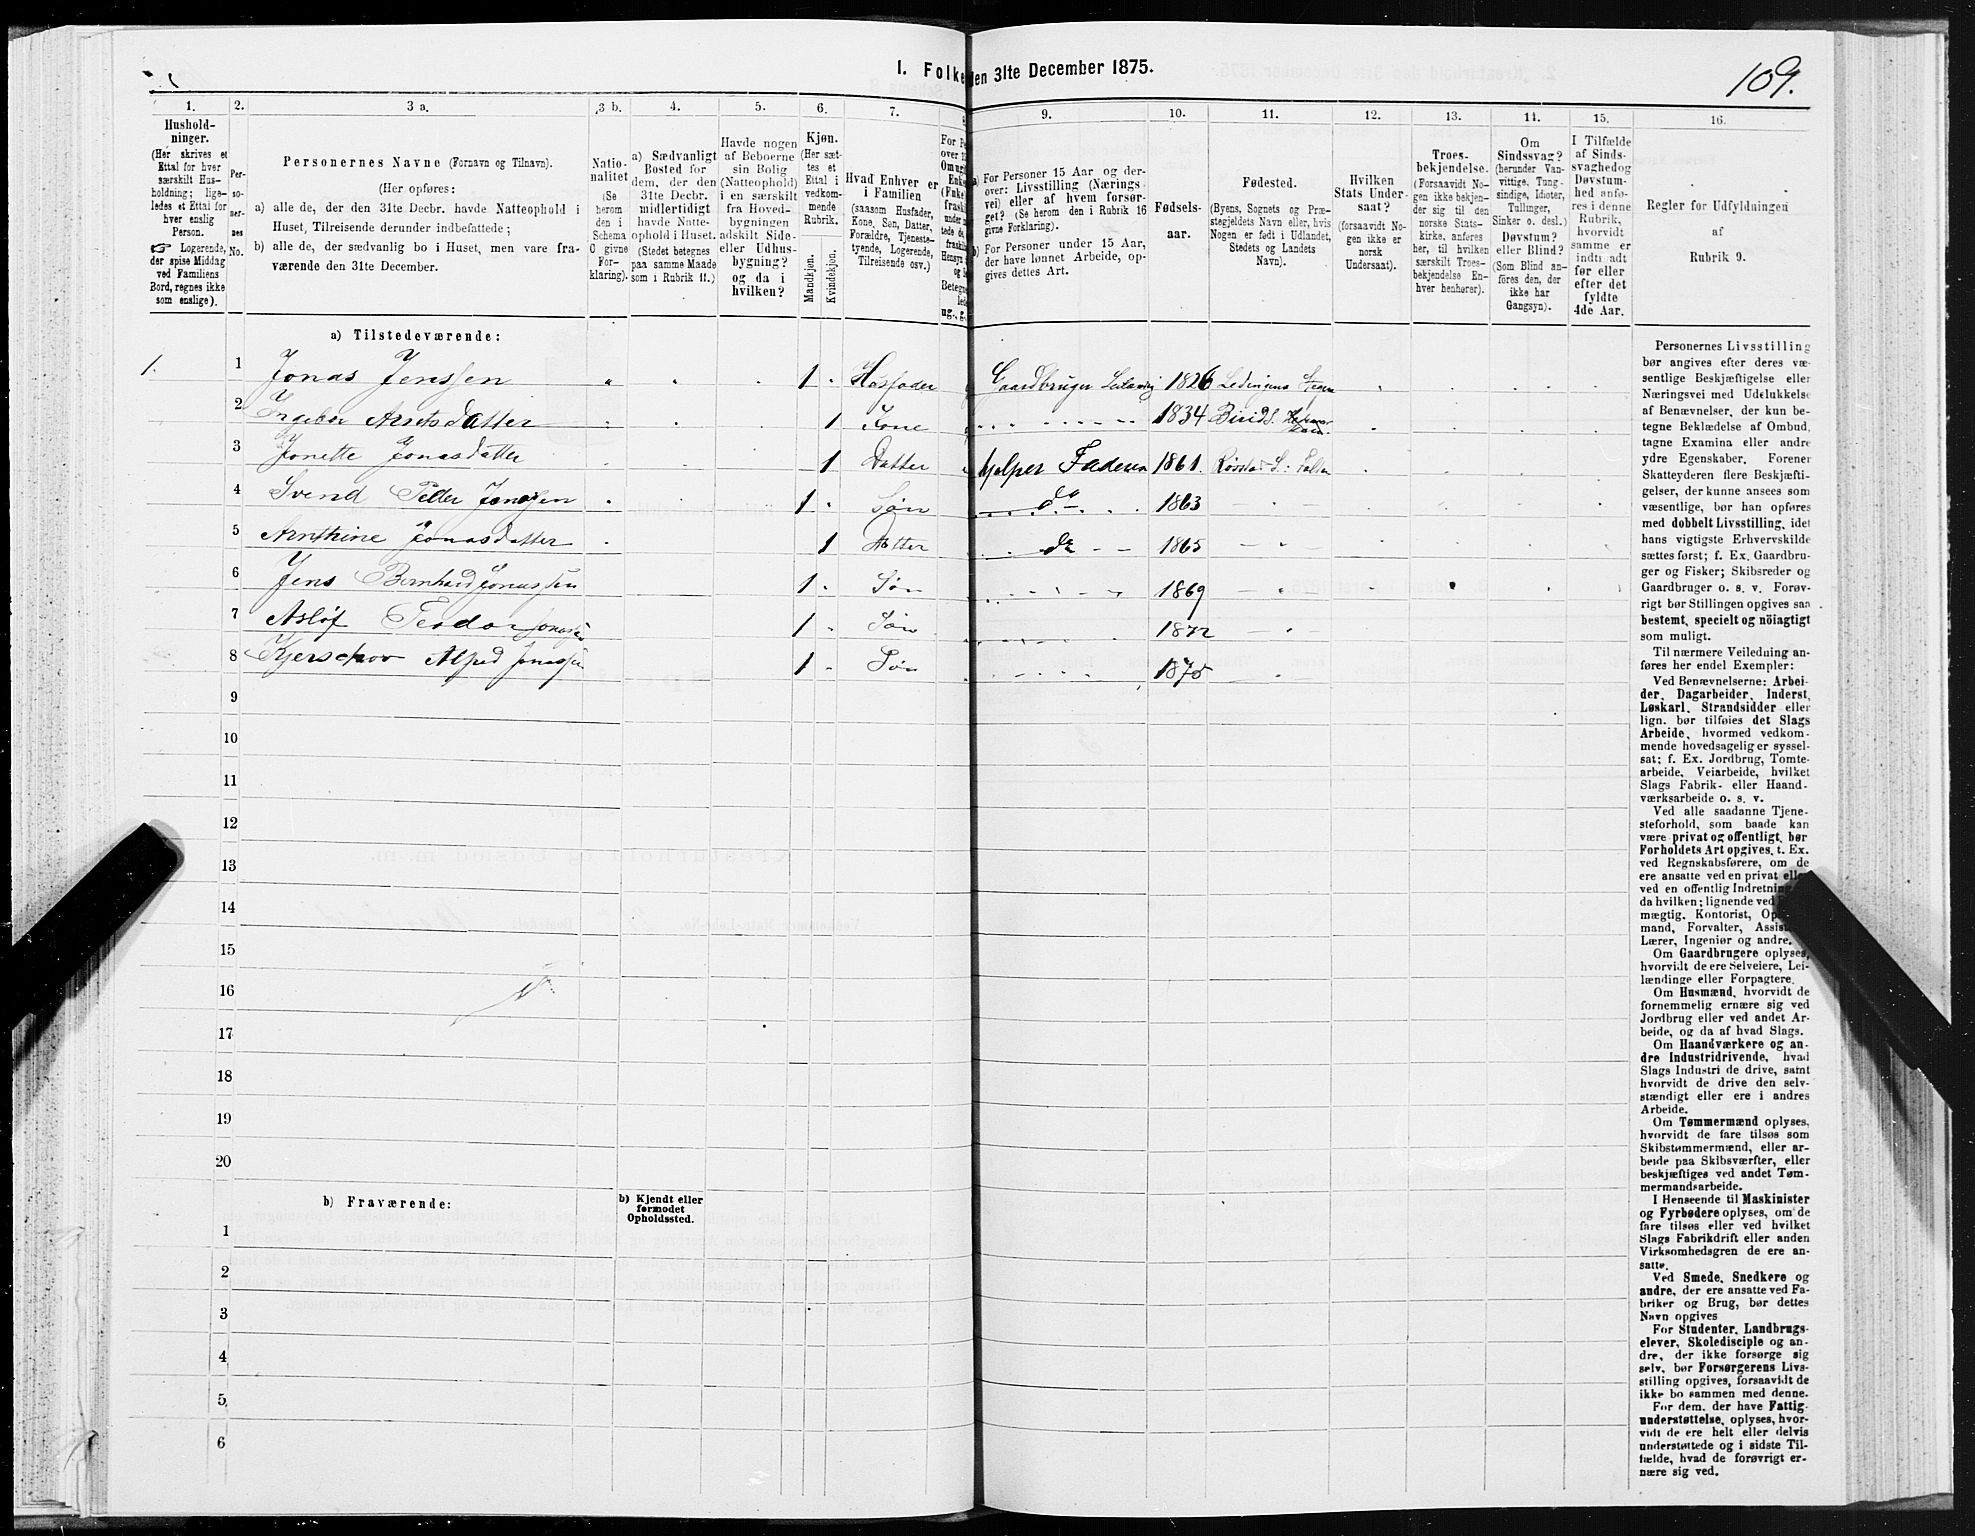 I. Folke
den 31te December 1875.
109.
1.
2.
3 a.
3 b.
4.
5.
6.
7.
8
9.
10.
11.
12.
13.
14.
15.
16.
Hushold-
ninger.
(Her skrives et
Ettal for hver
særskilt Hus-
holdning; lige-
ledes et Ettal for
hver enslig
Person.
☞ Logerende,
der spise Middag
ved Familiens
Bord, regnes ikke
som enslige).
Per-
so-
ner-
nes
No.
Personernes Navne (Fornavn og Tilnavn).
(Her opføres:
a) alle de, der den 31te Decbr. havde Natteophold i
Huset, Tilreisende derunder indbefattede;
b) alle de, der sædvanlig bo i Huset, men vare fra-
værende den 31te December.
Natio-
nalitet
(Se
herom
den i
Schema
C givne
For-
klaring).
a) Sædvanligt
Bosted for
dem, der den
31te Decbr.
midlertidigt
havde Natte-
ophold i Huset.
(Stedet betegnes
paa samme Maade
som i Rubrik 11.)
Havde nogen
af Beboerne
sin Bolig
(Natteophold)
i en særskilt
fra Hoved-
bygningen
adskilt Side-
eller Udhus-
bygning?
og da i
hvilken?
Kjøn.
(Her sæt-
tes et
Ettal i
vedkom-
mende
Rubrik.
Mandkjøn.
Kvindekjøn.
Hvad Enhver er
i Familien
(saasom Husfader,
Kone, Søn, Datter,
Forældre, Tjeneste-
tyende, Logerende,
Tilreisende osv.)
For P
over 1
Omug
Enke
(Enke
fraski
under
tede,
fraski
Hensyn
og
Betegn
led
ug., g.
a) For Personer 15 Aar og der-
over: Livsstilling (Nærings-
vei) eller af hvem forsør-
get? (Se herom den i Rubrik 16
givne Forklaring).
b) For Personer under 15 Aar,
der have lønnet Arbeide, op-
gives dettes Art.
Fødsels-
aar.
Fødested.
(Byens, Sognets og Præ-
stegjeldets Navn eller, hvis
Nogen er født i Udlandet,
Stedets og Landets
Navn).
Hvilken
Stats Under-
saat?
(forsaavidt No-
gen ikke er
norsk
Undersaat).
Troes-
bekjendelse.
(Forsaavidt No-
gen ikke bekjen-
der sig til den
norske Stats-
kirke, anføres
her, til hvilken
særskilt Troes-
bekjendelse En-
hver henhører).
Om
Sindssvag?
(herunder Van-
vittige, Tung-
sindige, Idioter,
Tullinger,
Sinker o. desl.)
Døvstum?
eller Blind?
(Som Blind an-
føres den, der
ikke har
Gangsyn).
I Tilfælde
af Sinds-
svaghed og
Døvstum-
hed anfø-
res i denne
Rubrik,
hvorvidt
samme er
indtraadt
før eller
efter det
fyldte
4de Aar.
Regler for Udfyldningen
af
Rubrik 9.
a) Tilstedeværende:
1. 1 Jonas Jenssen 1 Husfader Gaardbruger 1826
2 Ingebor Arntsdatter 1 Kone 1834
3 Jonette Jonasdatter 1 Datter hjelper Faderen 1861
4 Svend Peder Jonassen 1 Søn do 1863
5 Arnthine Jonasdatter 1 Datter do 1865
6 Jens Bernhard Jonassen 1 Søn 1869
7 Asløf Teodor Jonassen 1 Søn 1872
8 Kjerschov Alfred Jonassen 1 Søn 1875
9
10
11
12
13
14
15
16
17
18
19
20
b) Fraværende:
b) Kjendt eller
formodet
Opholdssted.
1
2
3
4
5
6
Personernes Livsstilling
bør angives efter deres væ-
sentlige Beskjæftigelse eller
Næringsvei med Udelukkelse
af Benævnelser, der kun be-
tegne Beklædelse af Ombud,
tagne Examina eller andre
ydre Egenskaber. Forener
Skatteyderen flere Beskjæfti-
gelser, der kunne ansees som
væsentlige, bør han opføres
med dobbelt Livsstilling, idet
hans vigtigste Erhvervskilde
sættes først; f. Ex. Gaardbru-
ger og Fisker; Skibsreder og
Gaardbruger o. s. v. Forøv-
rigt bør Stillingen opgives saa
bestemt, specielt og nöiagtigt
som muligt.
Til nærmere Veiledning an-
føres her endel Exempler:
Ved Benævnelserne: Arbei-
der, Dagarbeider, Inderst,
Løskarl, Strandsidder eller
lign. bør tilføies det Slags
Arbeide, hvormed vedkom-
mende hovedsagelig er syssel-
sat; f. Ex. Jordbrug, Tomte-
arbeide, Veiarbeide, hvilket
Slags Fabrik- eller Haand-
værksarbeide o. s. v.
Ved alle saadanne Tjene-
steforhold, som baade kan
være privat og offentligt, bør
Forholdets Art opgives, t. Ex.
ved Regnskabsførere, om de
ere ansatte ved en privat eller
ved en offentlig Indretning
da hvilken; lignende ved
mægtig, Kontorist, Op
mand, Forvalter, Assist
Lærer, Ingeniør og andre.
Om Gaardbrugere oplyses,
hvorvidt de ere Selveiere, Lei-
lændinge eller Forpagtere.
Om Husmænd, hvorvidt de
fornemmelig ernære sig ved
Jordbrug eller ved andet Ar-
beide, og da af hvad Slags.
Om Haandværkere og an-
dre Industridrivende, hvad
Slags Industri de drive, samt
hvorvidt de drive den selv-
stændigt eller ere i andres
Arbeide.
Om Tømmermænd oplyses,
hvorvidt de fare tilsøs som
Skibstømmermænd, eller ar-
beide paa Skibsværfter, eller
beskjæftiges ved andet Tøm-
mermandsarbeide.
I Henseende til Maskinister
og Fyrbødere oplyses, om de
fare tilsøs eller ved hvilket
Slags Fabrikdrift eller anden
Virksomhedsgren de ere an-
satte.
Ved Smede, Snedkere og
andre, der ere ansatte ved Fa-
briker og Brug, bør dettes
Navn opgives
For Studenter, Landbrugs-
elever, Skoledisciple og an-
dre, der ikke forsørge sig
selv, bør Forsørgerens Livs-
stilling opgives, forsaavidt de
ikke bo sammen med denne.
For dem, der have Fattig-
understøttelse, oplyses, hvor-
vidt de ere helt eller delvis
understøttede og i sidste Til-
fælde, hvad de forøvrigt er-
nære sig ved.